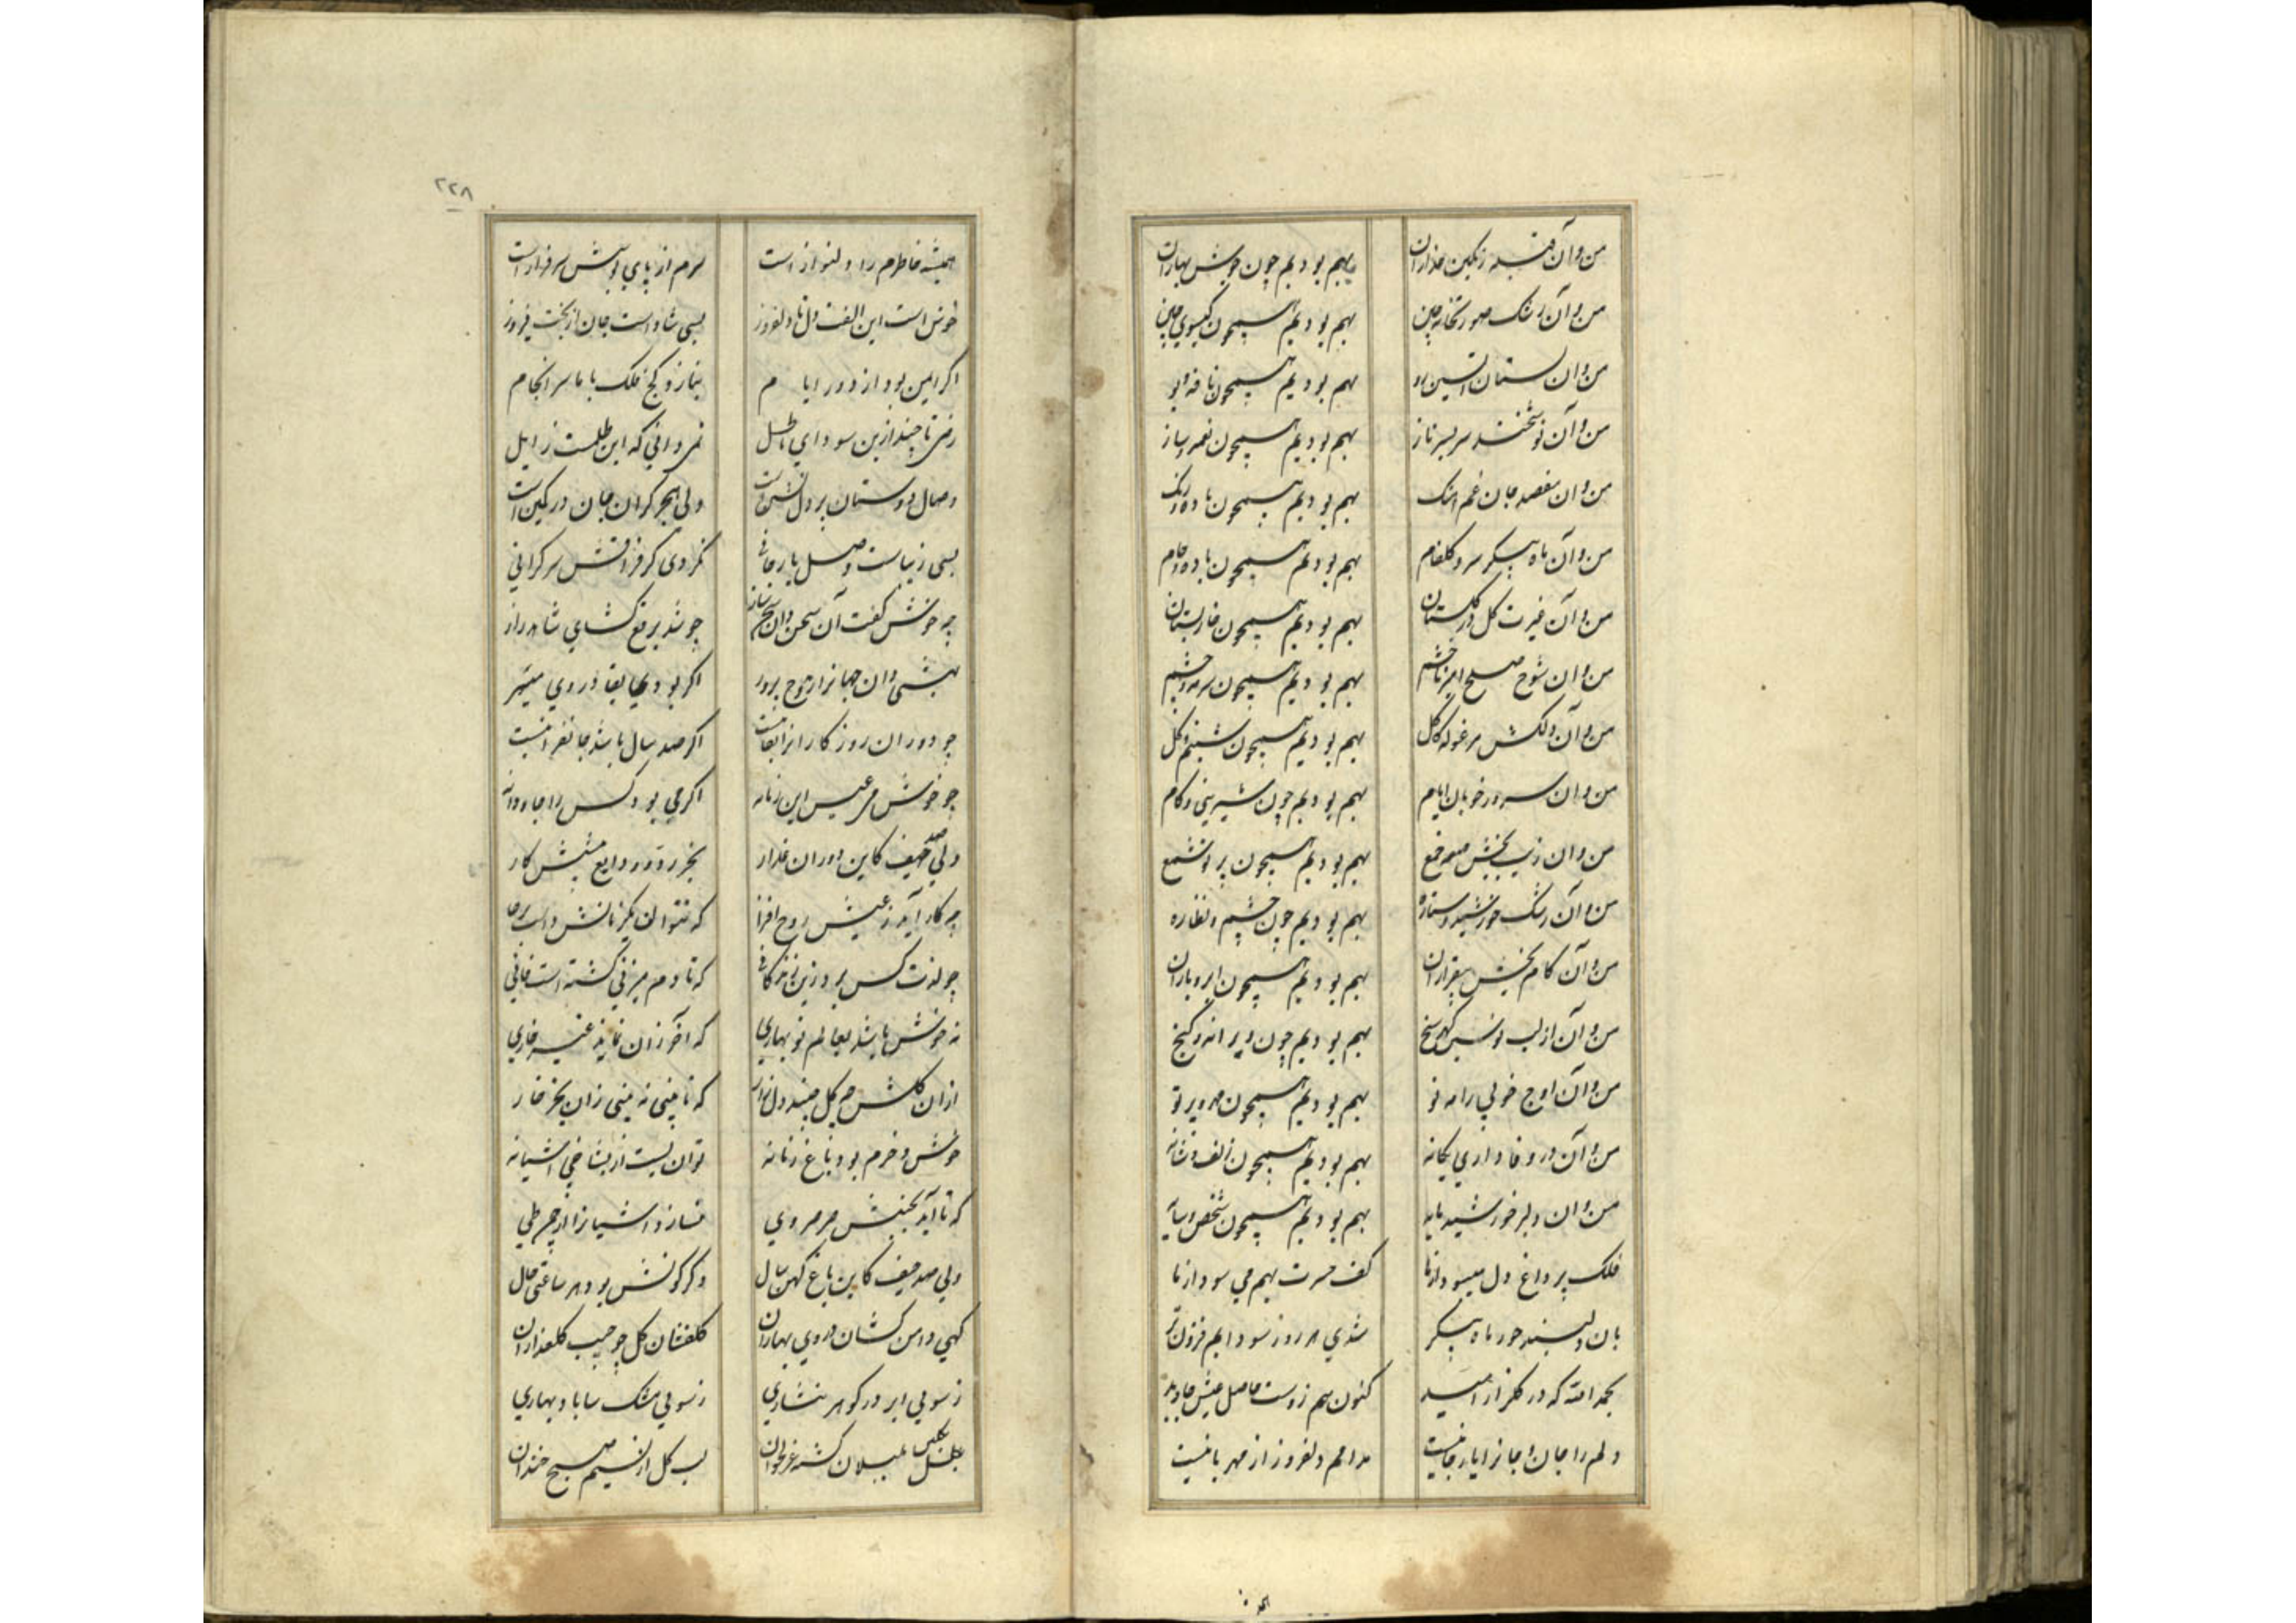 من و آن قبله رنگین عذاران بهم بودیم چون جوش بهاران
من و آن رشک صورتخانه چین بهم بودیم همچون گیسوی چین
من و ان بهم بودیم همچون نافه و بو
من و آن نوشخند سربسر ناز بهم بودیم همچون نغمه و ساز
من و ان مقصد جان غم بهم بودیم همچون باده و رنگ
من و آن ماه پیکر سرو گلفام بهم بودیم همچون باده و جام
من و آن غیرت گل در گلستان بهم بودیم همچون خار بستان
من و ان شوخ صلح امیز خشم بهم بودیم همچون سرمه و چشم
من و آن دلکش مرغوله کاکل بهم بودیم همچون شبنم و گل
من و ان سرور خوبان ایام بهم بودیم چون شیرینی و کام
من و ان زیب بخش بهم بودیم همچون پرتو شمع
من و آن رشک خورشید و ستاره بهم بودیم چون چشم و نظاره
من و آن کام بخش بیقراران بهم بودیم همچون ابر و باران
من و آن از لب گهرسنج بهم بودیم چون ویرانه و گنج
من و آن اوج خوبی را مه نو بهم بودیم همچون مه و پرتو
من و آن در وفاداری یگانه بهم بودیم همچون زلف و شانه
من و ان دلبر خورشید مایه بهم بودیم همچون شخص و سایه
فلک پر داغ دل میسود از ما کف حسرت بهم می سود از ما
بان دلبند حور ماه پیکر شدی هر روز سودایم فزون تر
بحمد الله که در گلزار امید کنون هم زوست حاصل عیش جاوید
دلم را جان و جانرا یار جانیست مدامم دلفروز از مهربانیست
۲۲۸
همیشه خاطرم را دلنواز است سرم از پای بوسش سرفراز است
خوش است این الفت دل تا دلفروز بسی شاد است جان از بخت فیروز
اگر ایمن بود از دور ایام نبازد کج فلک با ما سرانجام
رضی تا چند ازین سودای باطل نمی دانی که این ظلمت زایل
وصال دوستان پر دل نشین است ولی هجر گران جان در کمین است
بسی زیباست وصل یار جانی نکردی گر فراقش سرگرانی
چه خوش گفت آن سخن دان سخن ساز چو شد برقع گشای شاهد راز
بهشتی دان جهانرا روح پرور اگر بودی بقا در وی میسر
چو دوران روزگارانرا بقا نیست اگر صد سال باشد جانفزا نیست
چه خوش می عیش این زمانه اگر می بود کس را جاودانه
ولی صد حیف کاین دوران غدار
چه کار آید ز عیش روح افزا که نتوان یکزمانش داشت برجا
چه لذت کس برد زین زندگانی که تا دم میزنی گشته است فانی
نه خوش باشد بعالم نوبهاری که آخر زان نماند غیر خاری
ازان گلشن چه گل چیند دل زار که تا بینی نه بینی زان بجز خار
خوش و خرم بود باغ زمانه توان بست از بشاخی آشیانه
که تا آید بجنبش صرصر وی نسازد آشیانرا از چمن طی
ولی صد حیف کاین باغ کهن سال دگرگونش بود هر ساعتی حال
گهی دامن کشان در وی بهاران گلفشان گل چو جیب گلعذاران
ز سویی ابر در گوهر نثاری ز سویی مشک سا باد بهاری
بلبل بلبلان گشته غزلخوان لب گل از نسیم صبح خندان